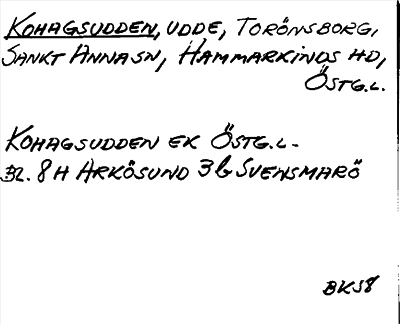 KOHAGSUDDEN, UDDE, TORÖNSBORG,
SANKT ANNA SN, HAMMARKINDS HD,
ÖSTG.L.
KOHAGSUDDEN EK ÖSTG.L.
BL. 8H ARKÖSUND 3b SVENSMARÖ
BK58